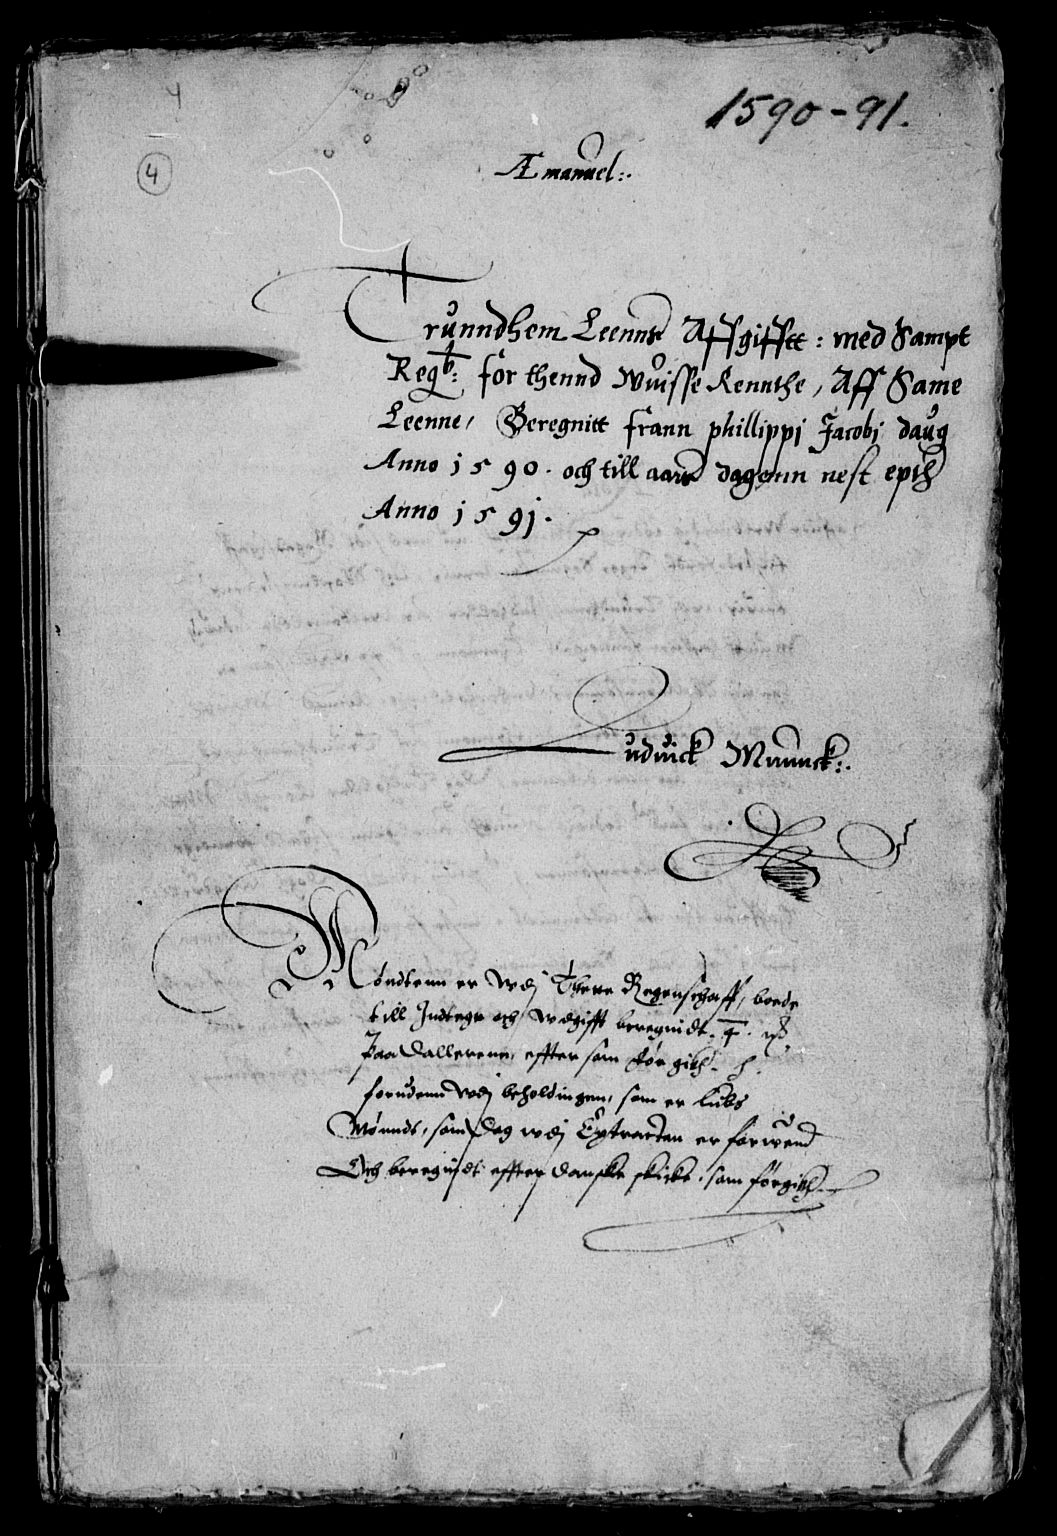 4
1590-91.
4
Æmanuel:.
Trunndhem Leenns Affgifftt: med Sampt
Regb: för thennd Wuisse Rennthe, Aff Same
Leenne, Beregnitt frann phillippi Jacobi daug
Anno 1590. och till aars dagenn nest epth
Anno 1591.
Luduick Munnck:.
Möndtenn er wdj Thene Regenschaff, bode
till Indtegt och wdgifft beregnidt. 4.
paa Dallerenn, effter som för
forudenn wdj beholdingen, som er lubs
Mönndt, som Dog wdj Extracten er forwend
Och beregnidt effter Danske skicke, som